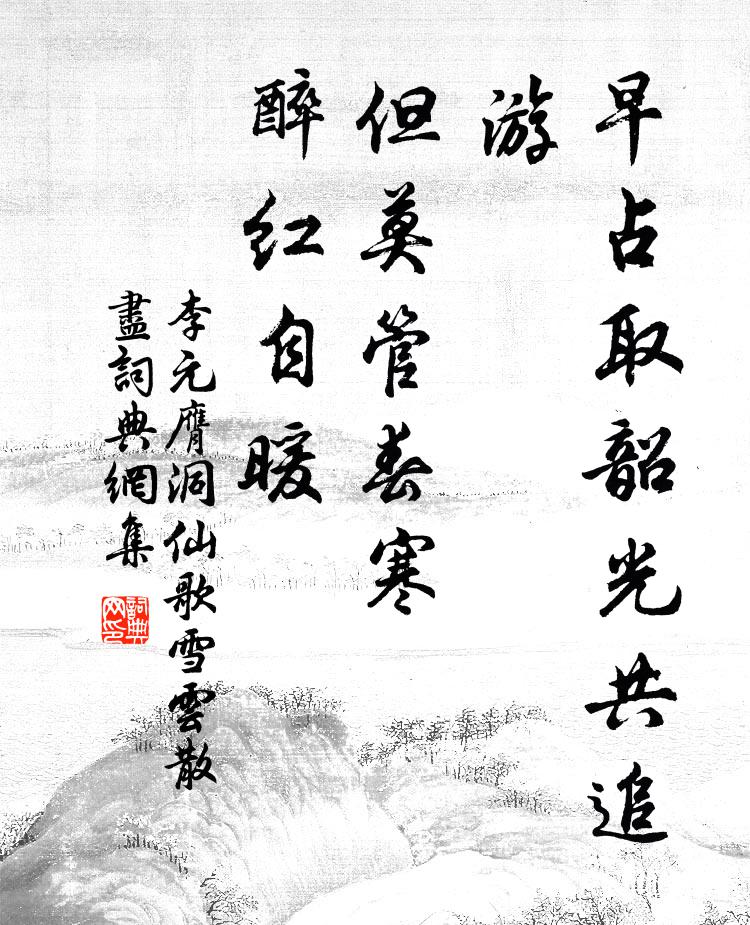 早占取韶光共追
游
但莫管春寒
醉红自暖
李元膺洞仙歌雪雲散
盡詞典網集
詞典网印